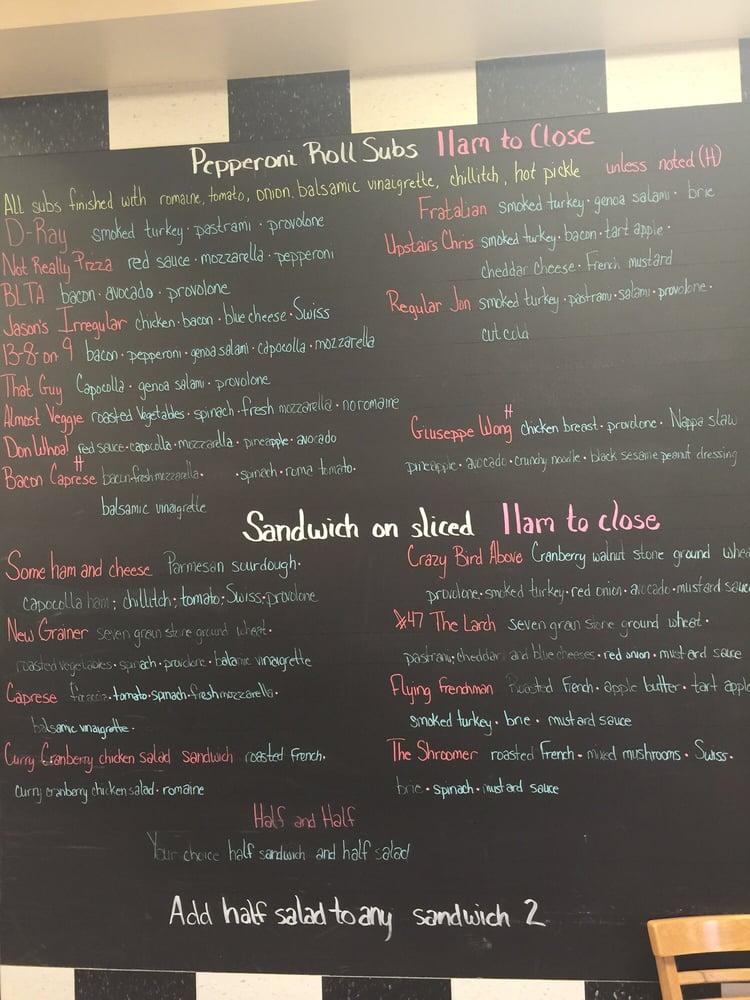 Pepperoni Roll Subs 11am to Close
All subs finished with romaine, tomato, onion, balsamic vinaigrette, chillitch, hot pickle unless noted (H)
D-Ray smoked turkey · pastrami · provolone
Not Really Pizza red sauce · mozzarella · pepperoni
BLTA bacon · avocado · provolone
Jason's Irregular chicken · bacon · blue cheese · Swiss
13-8-on 9 bacon · pepperoni · genoa salami · capocolla · mozzarella
That Guy Capocolla · genoa salami · provolone
Almost Veggie roasted vegetables · spinach · fresh mozzarella · no romaine
Don Whoa! red sauce · capocolla · mozzarella · pineapple · avocado
Bacon Caprese H bacon · fresh mozzarella · · spinach · roma tomato ·
balsamic vinaigrette
Fratalian smoked turkey · genoa salami · brie
Upstairs Chris smoked turkey · bacon · tart apple ·
cheddar cheese · French mustard
Regular Jon smoked turkey · pastrami · salami · provolone ·
cut cold
Giuseppe Wong H chicken breast · provolone · Nappa slaw
pineapple · avocado · crunchy noodle · black sesame peanut dressing
Sandwich on sliced 11am to close
Some ham and cheese Parmesan sourdough ·
capocolla ham; chillitch; tomato; Swiss · provolone
New Grainer seven grain stone ground wheat ·
roasted vegetables · spinach · provolone · balsamic vinaigrette
Caprese focaccia · tomato · spinach · fresh mozzarella ·
balsamic vinaigrette ·
Curry Cranberry chicken salad sandwich roasted French ·
curry cranberry chicken salad · romaine
Crazy Bird Above Cranberry walnut stone ground whea
provolone · smoked turkey · red onion · avocado · mustard sauce
#47 The Larch seven grain stone ground wheat ·
pastrami; cheddar and blue cheeses · red onion · mustard sauce
Flying Frenchman Roasted French · apple butter · tart apple
smoked turkey · brie · mustard sauce
The Shroomer roasted French · mixed mushrooms · Swiss ·
brie · spinach · mustard sauce
Half and Half
Your choice half sandwich and half salad
Add half salad to any sandwich 2